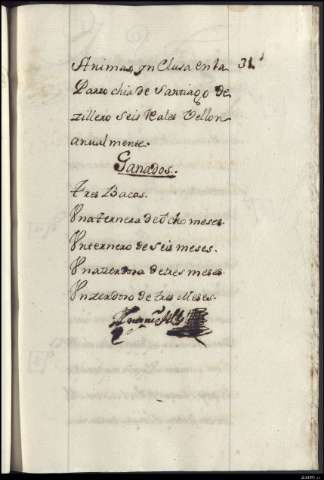 Animas yn Clusa en la 31
Parrochia de Santiago de
zillero seis Reales Vellon
anualmente.
Ganados.
tres Bacas.
Vna ternera de Ocho meses.
Vn ternero de seis meses.
Vna zerdora de tres meses.
Vn zerdoro de tres Meses.